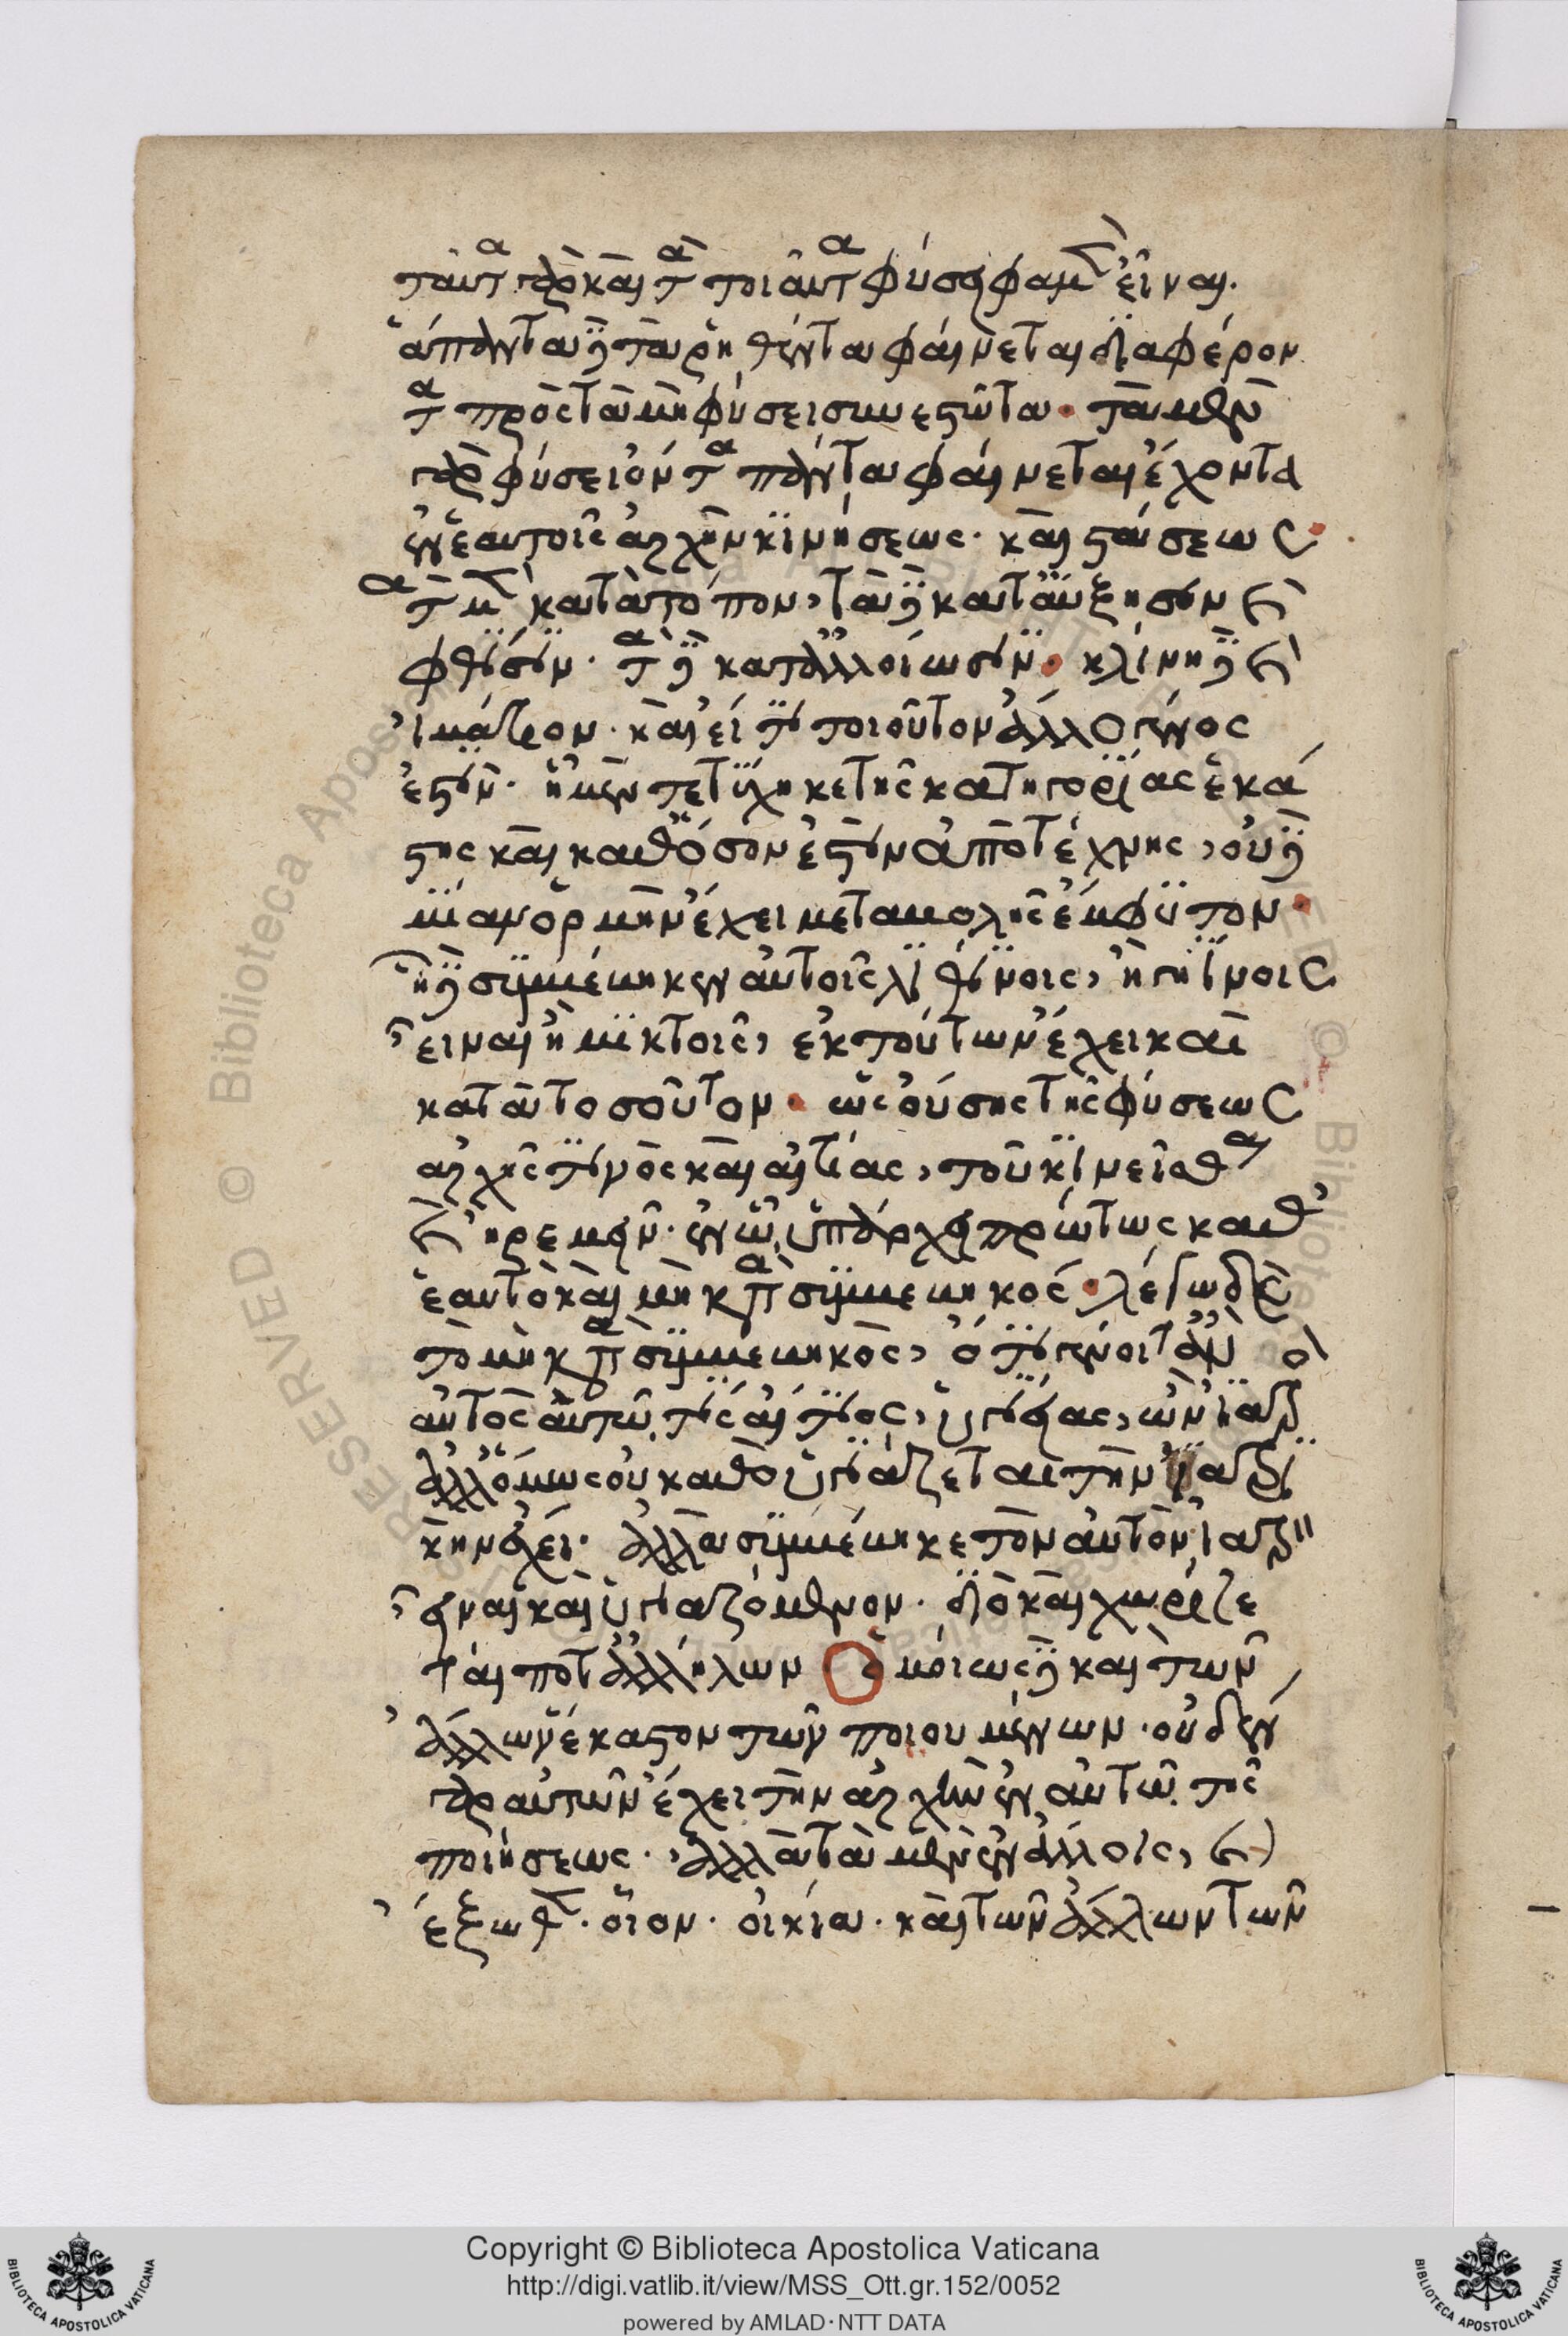 ταῦτα γὰρ καὶ τὰ τοιαῦτα φύσει φαμὲν εἶναι.
ἅπαντα δὲ τὰ ῥηθέντα φαίνεται διαφέρον
τα πρὸς τὰ μὴ φύσει συνεστῶτα· τὰ μὲν
γὰρ φύσει ὄντα πάντα φαίνεται ἔχοντα
ἐν ἑαυτοῖς ἀρχὴν κινήσεως· καὶ στάσεως·
τὰ μὲν κατὰ τόπον, τὰ δὲ κατ' αὔξησιν καὶ
φθίσιν· τὰ δὲ κατ' ἀλλοίωσιν· κλίνη δὲ καὶ
ἱμάτιον· καὶ εἴ τι τοιοῦτον ἄλλο γένος
ἐστίν· ἧ μὲν τετύχηκε τῆς κατηγορίας ἑκά
στης καὶ καθόσον ἐστὶν ἀπὸ τέχνης, οὐδε
μίαν ὁρμὴν ἔχει μεταβολῆς ἔμφυτον·
ἧ δὲ συμβέβηκεν αὐτοῖς λιθίνοις, ἢ γηΐνοις
εἶναι ἢ μικτοῖς, ἐκ τούτων ἔχει καὶ
κατὰ τοσοῦτον· ὡς οὔσης τῆς φύσεως
ἀρχῆς τινὸς καὶ αἰτίας, τοῦ κινεῖσθαι
καὶ ἠρεμεῖν· ἐν ᾧ ὑπάρχει πρώτως καθ'
ἑαυτὸ καὶ μὴ κατὰ συμβεβηκός· λέγω δὲ
τὸ μὴ κατὰ συμβεβηκὸς, ὅτι γένοιτ' ἂν
αὐτὸς αὑτῷ τις αἴτιος, ὑγιείας, ὢν ἰατρ
ἀλλ' ὅμως οὐ καθὸ ὑγιάζεται τὴν ἰατρι
κὴν ἔχει· ἀλλὰ συμβέβηκε τὸν αὐτὸν ἰατρὸν
εἶναι καὶ ὑγιαζόμενον· διὸ καὶ χωρίζε
ται ποτ' ἀλλήλων ὁμοίως δὲ καὶ τῶν
ἄλλων ἕκαστον τῶν ποιουμένων· οὐδὲν
γὰρ αὐτῶν ἔχει τὴν ἀρχὴν ἐν αὑτῷ τῆς
ποιήσεως· ἀλλὰ τὰ μὲν ἐν ἄλλοις, καὶ
ἔξωθεν· οἷον· οἰκία· καὶ τῶν ἄλλων τῶν
Copyright © Biblioteca Apostolica Vaticana
http://digi.vatlib.it/view/MSS_Ott.gr.152/0052
powered by AMLAD·NTT DATA